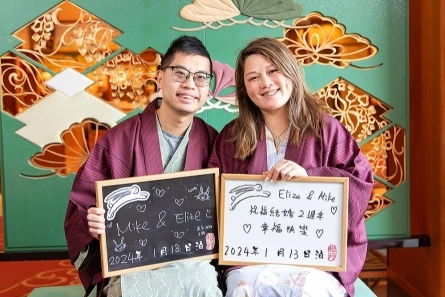 Mike & Elize
2024年 1月 13日
Elize & Mike
祝福結婚2週年
幸福快樂
2024年 1月 13日